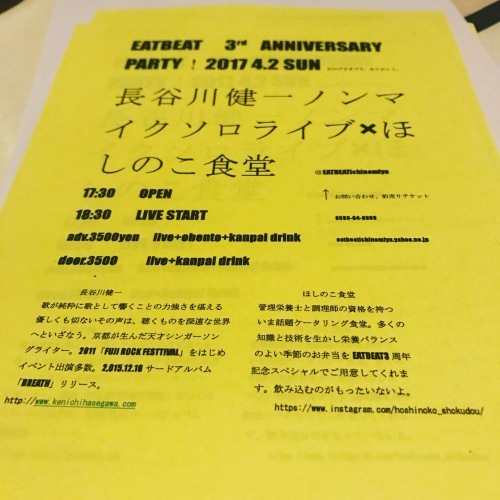 EATBEAT 3rd ANNIVERSARY
PARTY！2017 4.2 SUN おかげさまです。ありがとう。
長谷川健一ノンマ
イクソロライブ×ほ
しのこ食堂
@EATBEATichinomiya
17:30 OPEN
↑ お問い合わせ、前売りチケット
18:30 LIVE START
adv.3500yen live+obento+kanpai drink
eatbeatichinomiya.yahoo.ne.jp
deer.3500 live+kanpai drink
長谷川健一
歌が純粋に歌として響くことの力強さを湛える
優しくも切ないその声は、聴くものを深遠な世界
へといざなう。京都が生んだ天才シンガーソン
グライター。2011「FUJI ROCK FESTIVAL」をはじめ
イベント出演多数。2,015.12.16 サードアルバム
「BREATH」リリース。
http://www.kenichihasegawa.com
ほしのこ食堂
管理栄養士と調理師の資格を持つ
いま話題ケータリング食堂。多くの
知識と技術を生かし栄養バランス
のよい季節のお弁当を EATBEAT3 周年
記念スペシャルでご用意してくれま
す。飲み込むのがもったいないよ。
https://www.instagram.com/hoshinoko_shokudou/